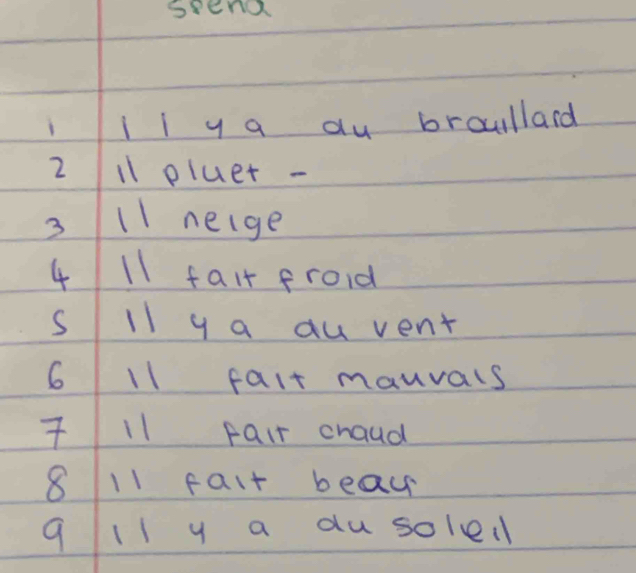 spend
1 il y a du brouillard
2 il pluet -
3 il neige
4 il fait froid
5 il y a du vent
6 il fait mauvais
7 il fait chaud
8 il fait beau
9 il y a du soleil